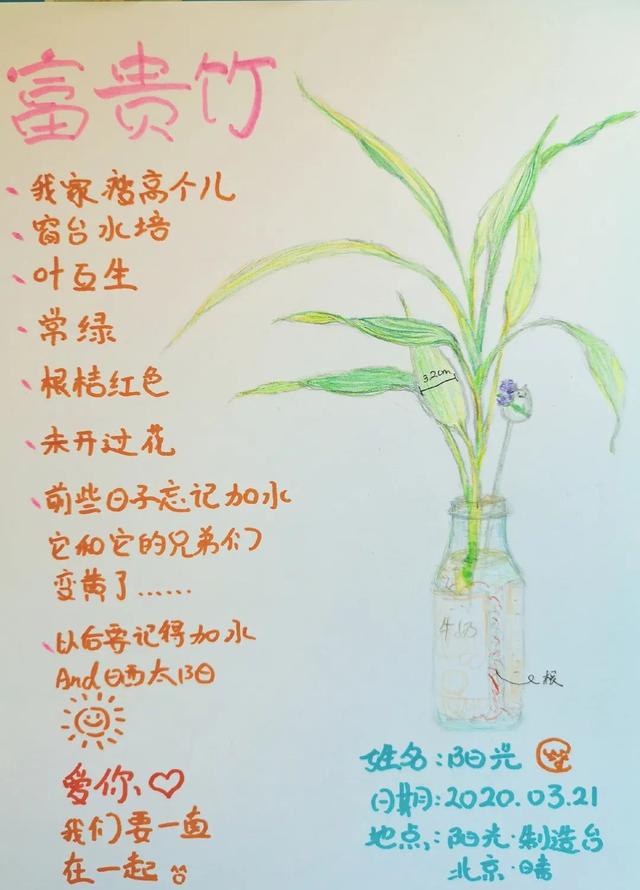 富贵竹
我家瘦高个儿
窗台水培
叶互生
常绿
根桔红色
未开过花
前些日子忘记加水
它和它的兄弟们
变黄了……
以后要记得加水
And 晒太阳
爱你、♡
我们要一直
在一起
3.2cm
牛奶
根
姓名:阳光
日期:2020.03.21
地点:阳光·制造台
北京·晴